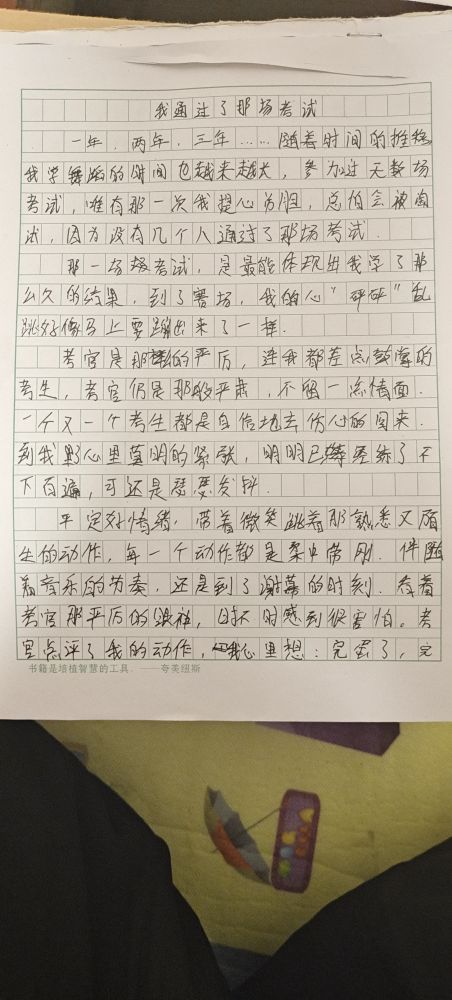 我通过了那场考试
一年，两年，三年……随着时间的推移
我学舞蹈的时间也越来越长，参加过无数场
考试，唯有那一次我提心吊胆，总怕会被面
试，因为没有几个人通过了那场考试．
那一场考试，是最能体现出我学了那
么久的结果，到了赛场，我的心"砰砰"乱
跳好像马上要蹦出来了一样．
考官是那的严厉，连我都差点
考生，考官仍是那般严肃，不留一点情面．
一个又一个考生都是自信地去伤心的回来．
到我那心里莫明的紧张，明明已经练了不
下百遍，可还是瑟瑟发抖．
平定好情绪，带着微笑跳着那熟悉又陌
生的动作，每一个动作都是柔中带刚．伴随
着音乐的节奏，还是到了谢幕的时刻．看着
考官那严厉的眼神，时不时感到很害怕。考
官点评了我的动作，我心里想：完蛋了，完
书籍是培植智慧的工具。——夸美纽斯